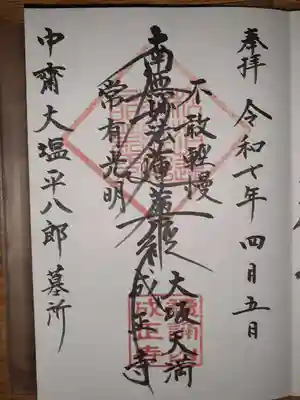 奉拝 令和七年 四月五日
不敢軽慢
南無妙法蓮華経
常有光明
大坂天満
成正寺
中齋 大塩平八郎 墓所
成正寺